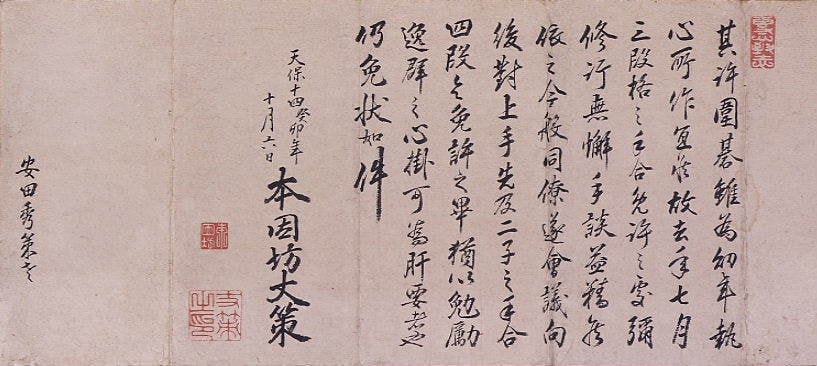 其許圍碁雖為幼年執
心所作宜故去年七月
三段格之手合免許之處彌
修行無懈手談益精
依之今般同僚遂會議向
後對上手先及二子之手合
四段令免許之畢猶以勉勵
逸群之心掛可為肝要者也
仍免状如件
天保十四癸卯年
十月六日
本因坊丈策
安田秀策老